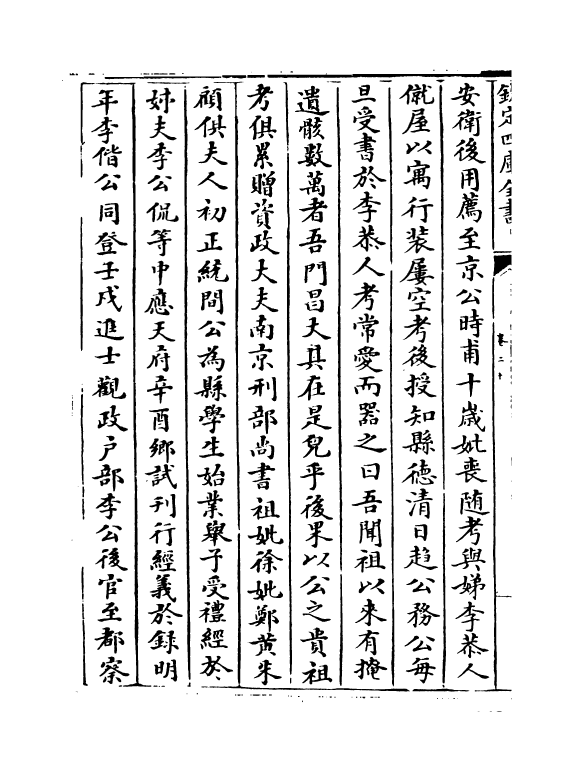 欽定四庫全書
卷二十
安衛後用薦至京公時甫十歲妣喪随考與娣李恭人
僦屋以寓行装屢空考後授知縣徳清日趋公務公每
旦受書於李恭人考常愛而器之曰吾聞祖以來有掩
遺骸數萬者吾門昌大其在是兒乎後果以公之貴祖
考俱累贈資政大夫南京刑部尚書祖妣徐妣鄭黄朱
顧俱夫人初正統間公為縣學生始業舉子受禮經於
姊夫李公侃等中應天府辛酉鄉試刊行經義於録明
年李偕公同登壬戌進士觀政户部李公後官至都察